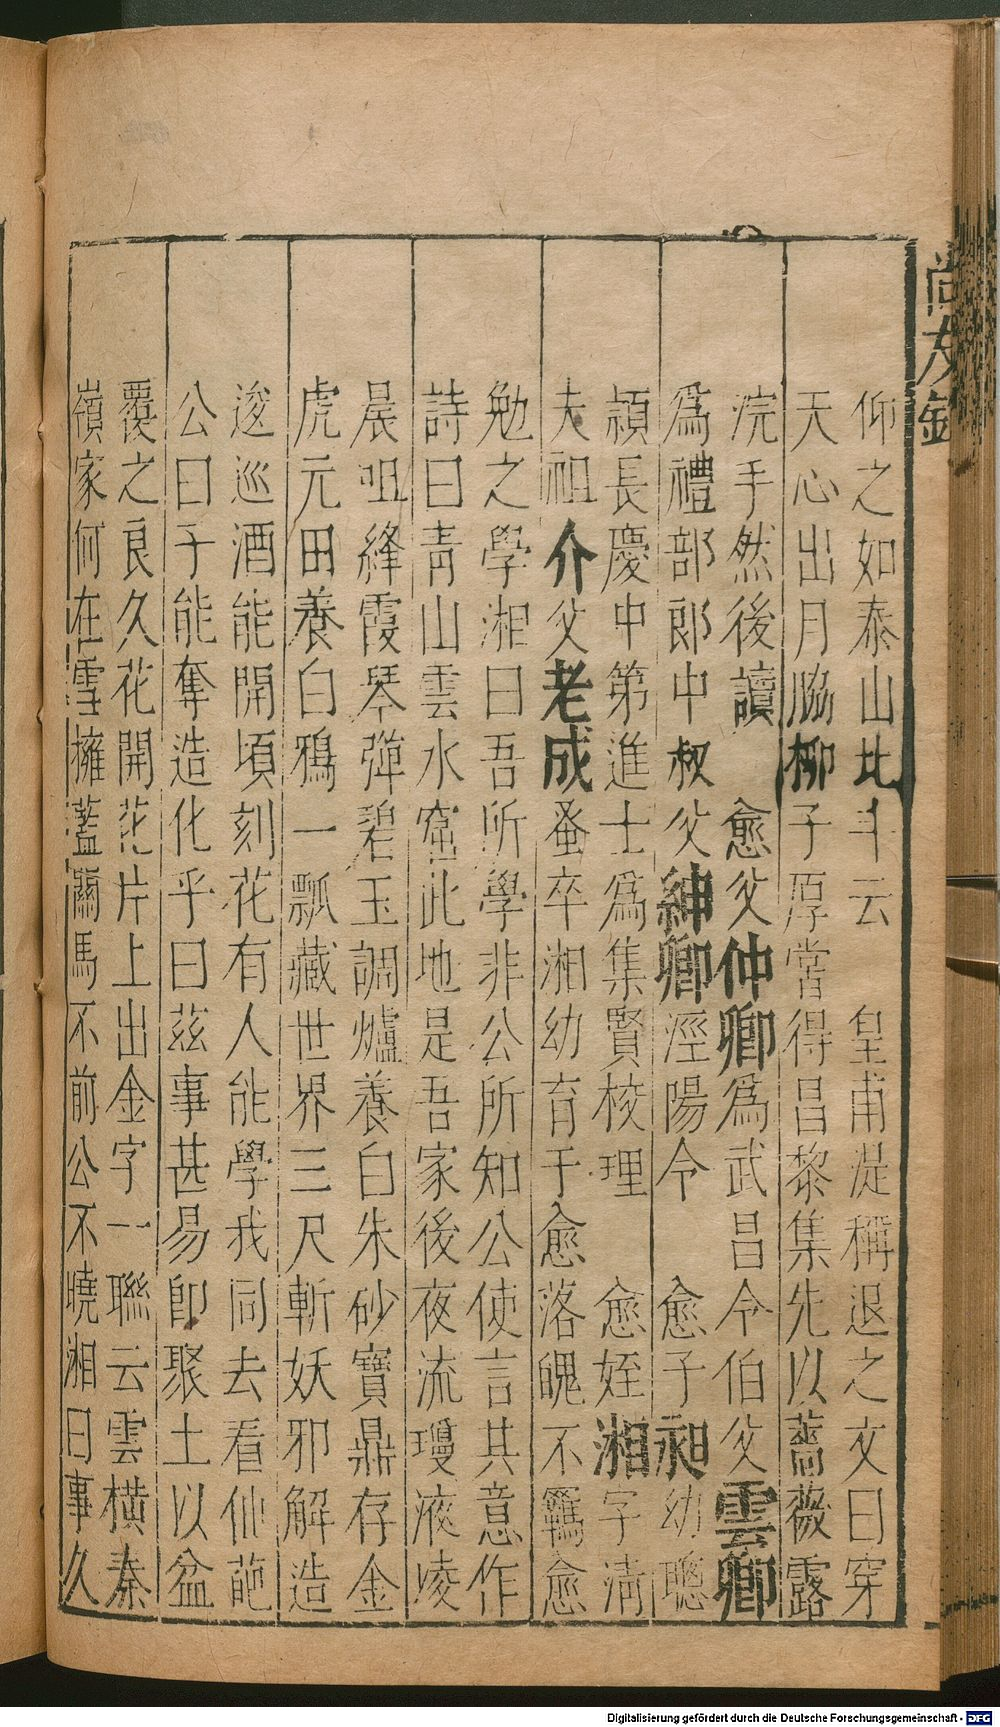 尚友錄
仰之如泰山北斗云　皇甫湜稱退之文曰穿
天心出月脇柳子厚嘗得昌黎集先以薔薇露
浣手然後讀　愈父仲卿爲武昌令伯父雲卿
爲禮部郎中叔父紳卿涇陽令　愈子昶幼聰
頴長慶中第進士爲集賢校理　愈姪湘字清
夫祖介父老成蚤卒湘幼育于愈落魄不羈愈
勉之學湘曰吾所學非公所知公使言其意作
詩曰青山雲水窟此地是吾家後夜流瓊液凌
晨咀絳霞琴彈碧玉調爐養白朱砂寶鼎存金
虎元田養白鴉一瓢藏世界三尺斬妖邪解造
逡巡酒能開頃刻花有人能學我同去看仙葩
公曰子能奪造化乎曰茲事甚易卽聚土以盆
覆之良久花開花片上出金字一聯云雲橫秦
嶺家何在雪擁藍關馬不前公不曉湘曰事久
Digitalisierung gefördert durch die Deutsche Forschungsgemeinschaft - DFG